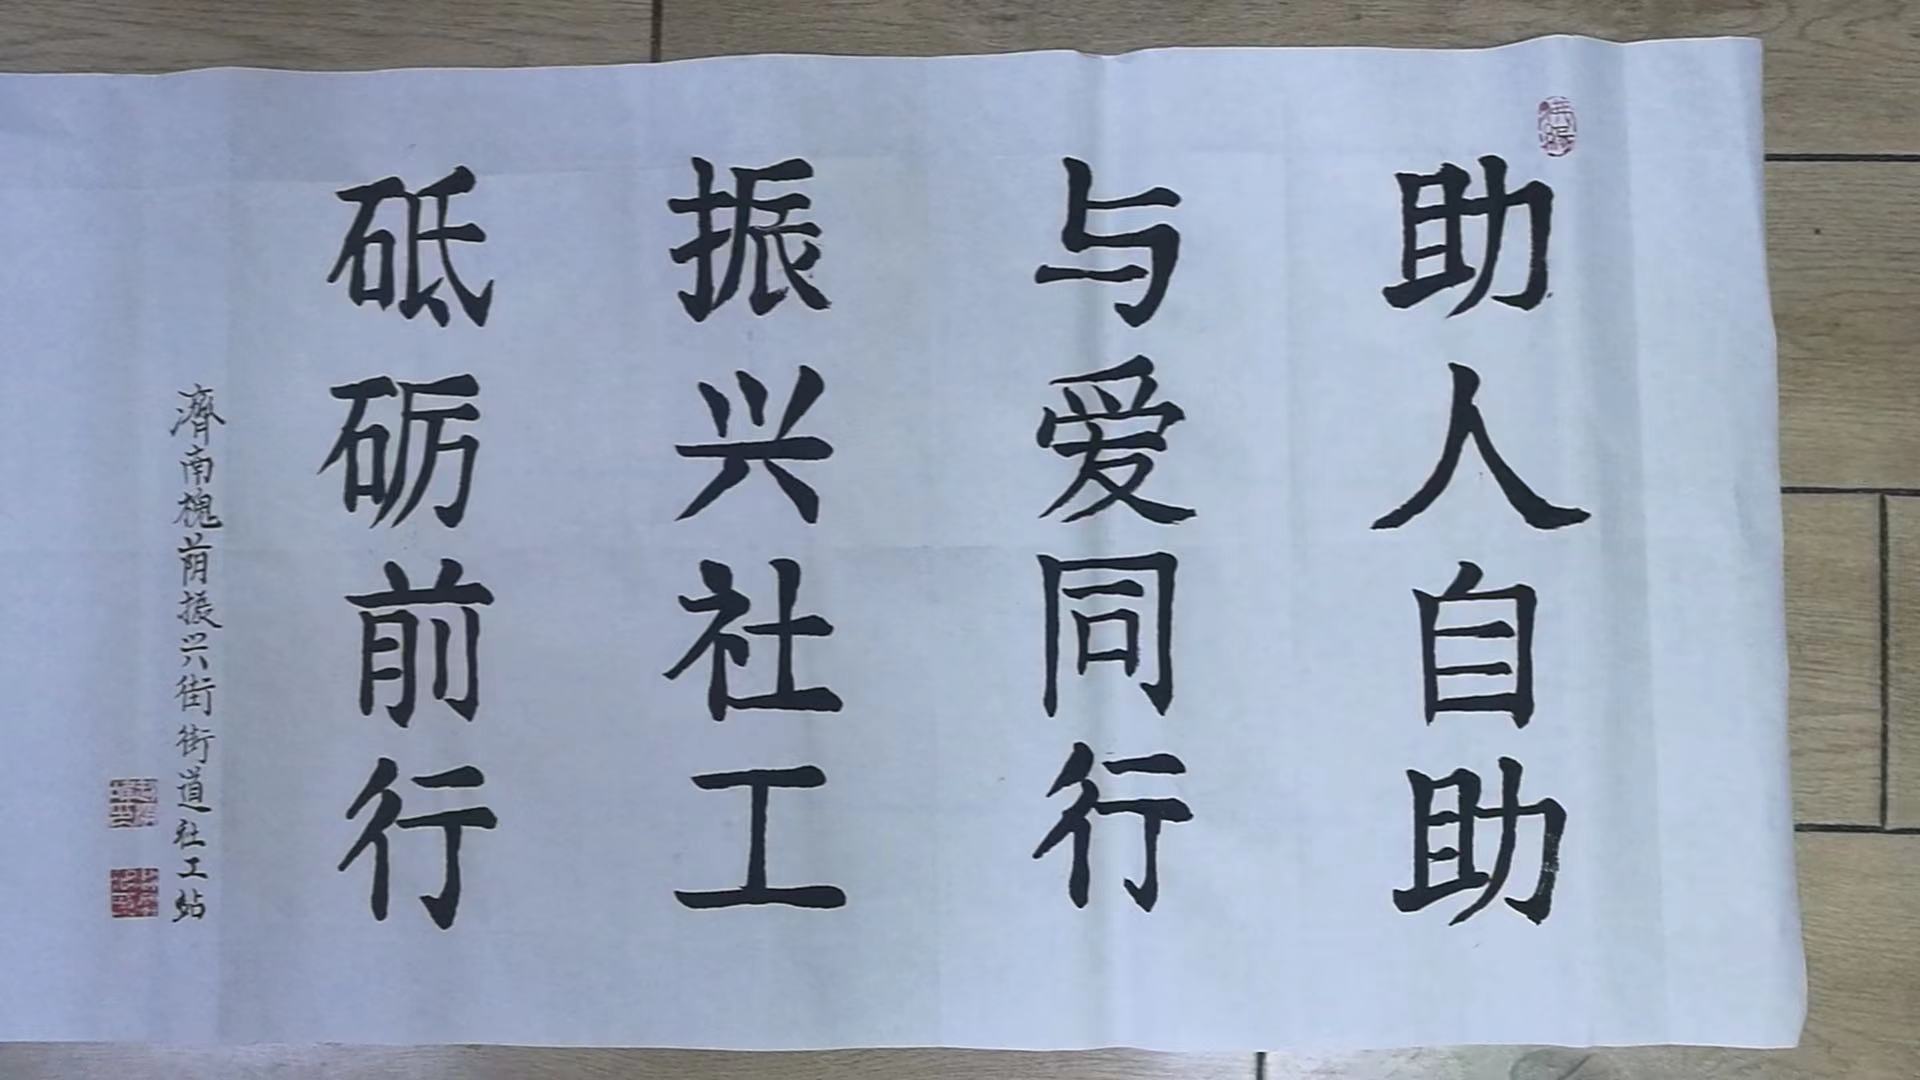 助人自助
与爱同行
振兴社工
砥砺前行
濟南槐荫振兴街街道社工站